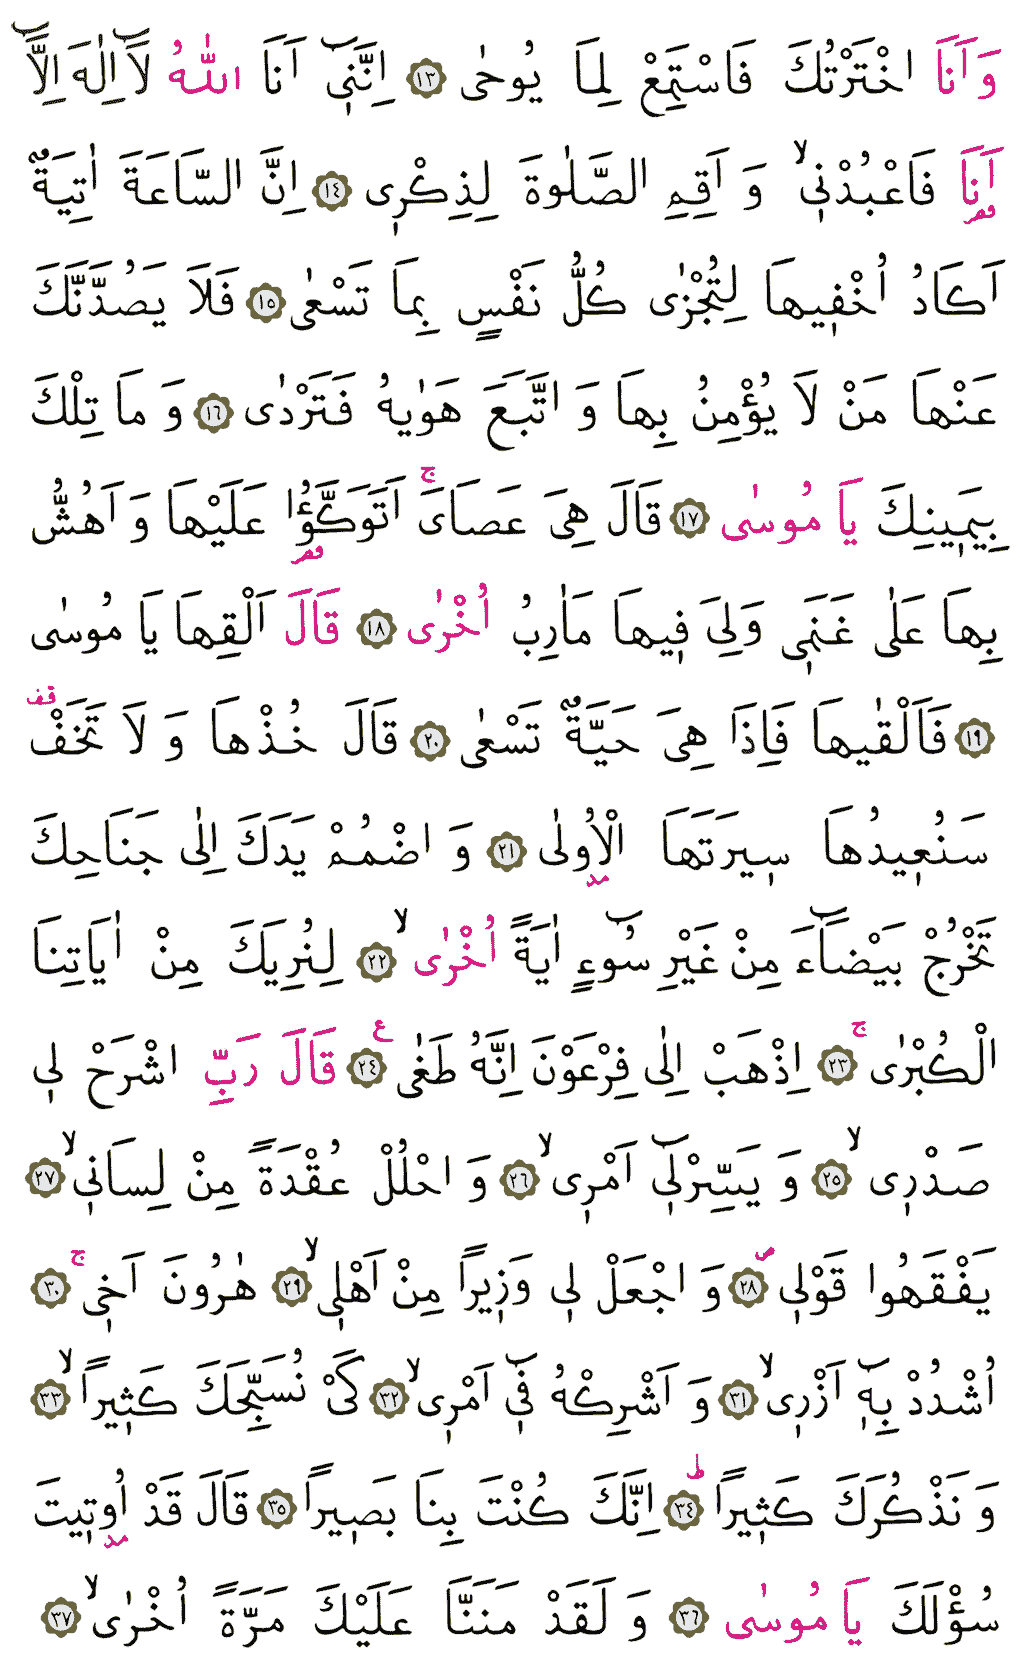 وَاَنَا اخْتَرْتُكَ فَاسْتَمِعْ لِمَا يُوحٰى ﴿١٣﴾ اِنَّن۪ٓى اَنَا اللّٰهُ لَٓا اِلٰهَ اِلَّٓا
اَنَا۬ فَاعْبُدْن۪ىۙ وَ اَقِمِ الصَّلٰوةَ لِذِكْر۪ى ﴿١٤﴾ اِنَّ السَّاعَةَ اٰتِيَةٌ
اَكَادُ اُخْف۪يهَا لِتُجْزٰى كُلُّ نَفْسٍ بِمَا تَسْعٰى ﴿١٥﴾ فَلَا يَصُدَّنَّكَ
عَنْهَا مَنْ لَا يُؤْمِنُ بِهَا وَ اتَّبَعَ هَوٰيهُ فَتَرْدٰى ﴿١٦﴾ وَ مَا تِلْكَ
بِيَم۪ينِكَ يَا مُوسٰى ﴿١٧﴾ قَالَ هِىَ عَصَاىَۚ اَتَوَكَّؤُ۬ا عَلَيْهَا وَ اَهُشُّ
بِهَا عَلٰى غَنَم۪ى وَلِىَ ف۪يهَا مَاٰرِبُ اُخْرٰى ﴿١٨﴾ قَالَ اَلْقِهَا يَا مُوسٰى
﴿١٩﴾ فَاَلْقٰيهَا فَاِذَا هِىَ حَيَّةٌ تَسْعٰى ﴿٢٠﴾ قَالَ خُذْهَا وَ لَا تَخَفْ۠ قف
سَنُع۪يدُهَا س۪يرَتَهَا الْاُو۫لٰى ﴿٢١﴾ وَ اضْمُمْ يَدَكَ اِلٰى جَنَاحِكَ
تَخْرُجْ بَيْضَٓاءَ مِنْ غَيْرِ سُٓوءٍ اٰيَةً اُخْرٰىۙ ﴿٢٢﴾ لِنُرِيَكَ مِنْ اٰيَاتِنَا
الْكُبْرٰىۚ ﴿٢٣﴾ اِذْهَبْ اِلٰى فِرْعَوْنَ اِنَّهُ طَغٰى ﴿٢٤﴾ ع قَالَ رَبِّ اشْرَحْ ل۪ى
صَدْر۪ىۙ ﴿٢٥﴾ وَ يَسِّرْل۪ٓى اَمْر۪ىۙ ﴿٢٦﴾ وَ احْلُلْ عُقْدَةً مِنْ لِسَان۪ىۙ ﴿٢٧﴾
يَفْقَهُوا قَوْل۪ىۖ ﴿٢٨﴾ وَ اجْعَلْ ل۪ى وَز۪يرًا مِنْ اَهْل۪ىۙ ﴿٢٩﴾ هٰرُونَ اَخ۪ىۚ ﴿٣٠﴾
اُشْدُدْ بِه۪ٓ اَزْر۪ىۙ ﴿٣١﴾ وَ اَشْرِكْهُ ف۪ٓى اَمْر۪ىۙ ﴿٣٢﴾ كَىْ نُسَبِّحَكَ كَث۪يرًاۙ ﴿٣٣﴾
وَ نَذْكُرَكَ كَث۪يرًاۜ ﴿٣٤﴾ اِنَّكَ كُنْتَ بِنَا بَص۪يرًا ﴿٣٥﴾ قَالَ قَدْ اُو۫ت۪يتَ
سُؤْلَكَ يَا مُوسٰى ﴿٣٦﴾ وَ لَقَدْ مَنَنَّا عَلَيْكَ مَرَّةً اُخْرٰىۙ ﴿٣٧﴾